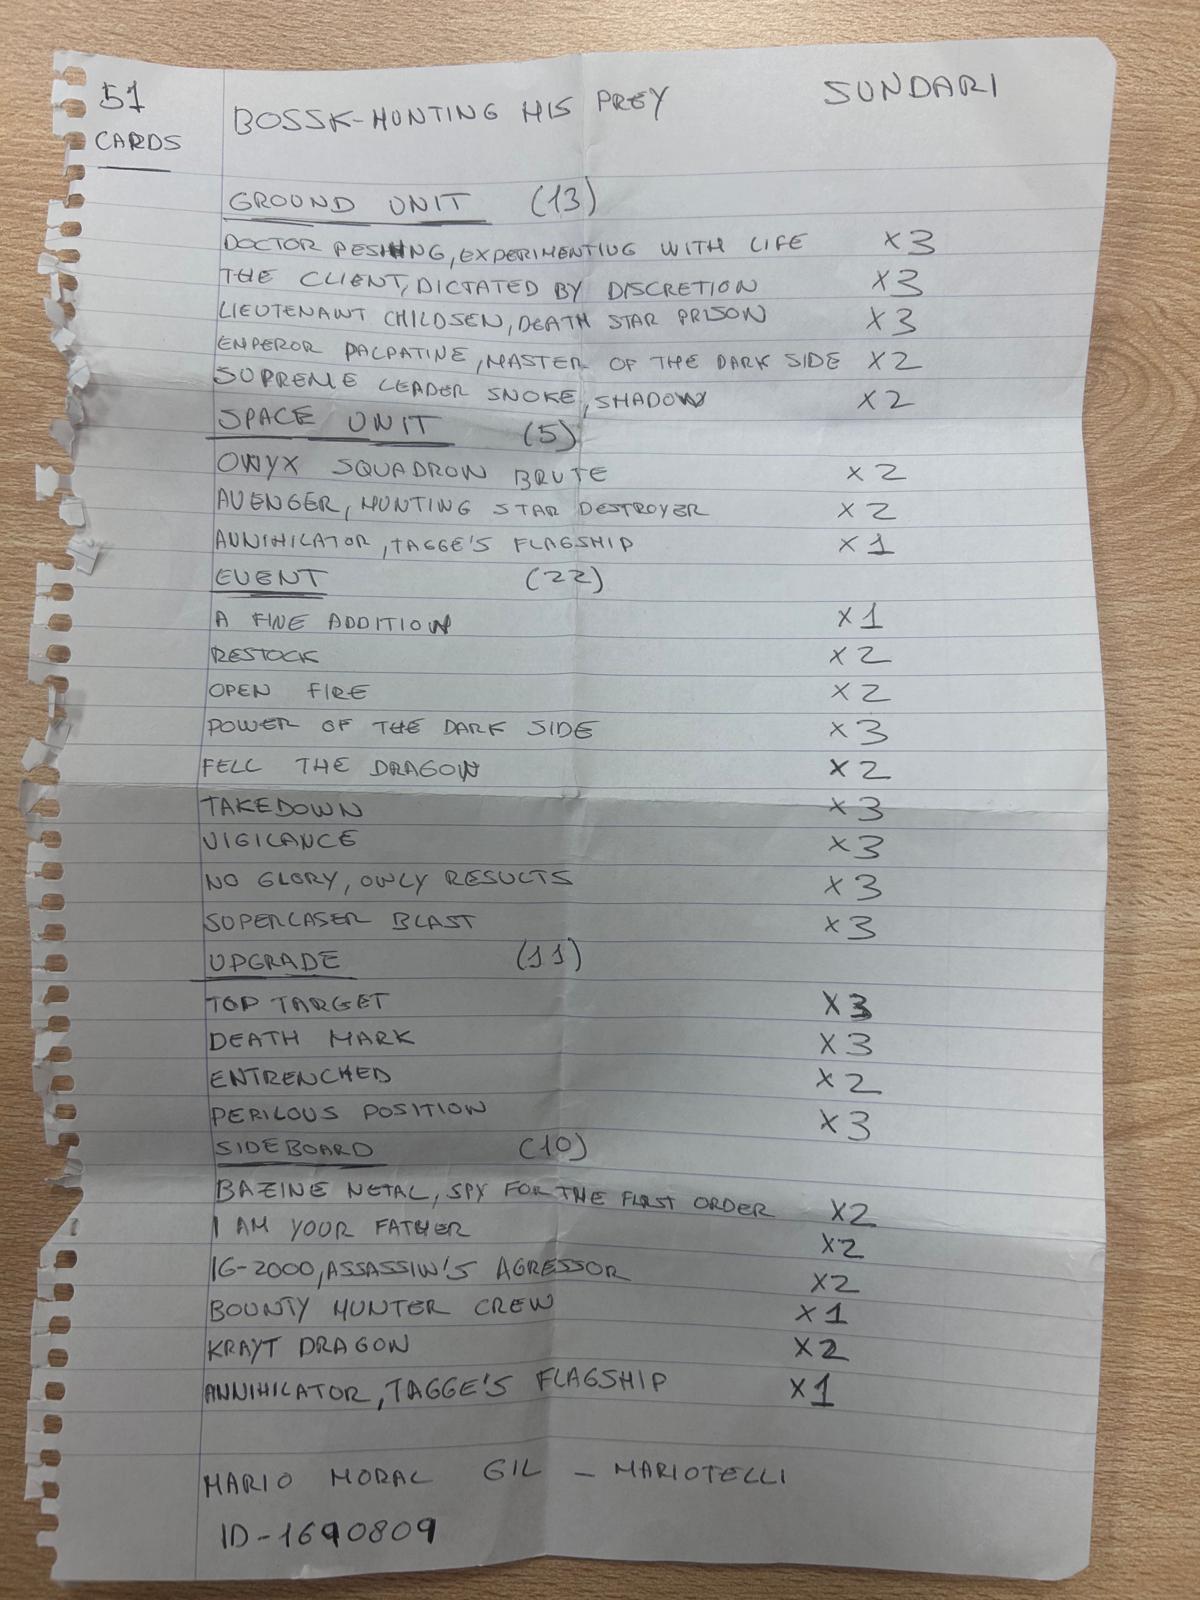 51
CARDS
BOSSK-HUNTING HIS PREY SUNDARI
GROUND UNIT (13)
DOCTOR PESHING, EXPERIMENTING WITH LIFE X3
THE CLIENT, DICTATED BY DISCRETION X3
LIEUTENANT CHILDSEN, DEATH STAR PRISON X3
EMPEROR PALPATINE, MASTER OF THE DARK SIDE X2
SUPREME LEADER SNOKE, SHADOW X2
SPACE UNIT (5)
ONYX SQUADRON BRUTE X2
AVENGER, HUNTING STAR DESTROYER X2
ANNIHILATOR, TAGGE'S FLAGSHIP X1
EVENT (22)
A FINE ADDITION X1
RESTOCK X2
OPEN FIRE X2
POWER OF THE DARK SIDE X3
FELL THE DRAGON X2
TAKEDOWN X3
VIGILANCE X3
NO GLORY, ONLY RESULTS X3
SUPERLASER BLAST X3
UPGRADE (11)
TOP TARGET X3
DEATH MARK X3
ENTRENCHED X2
PERILOUS POSITION X3
SIDEBOARD (10)
BAZINE NETAL, SPY FOR THE FIRST ORDER X2
I AM YOUR FATHER X2
IG-2000, ASSASSIN'S AGRESSOR X2
BOUNTY HUNTER CREW X1
KRAYT DRAGON X2
ANNIHILATOR, TAGGE'S FLAGSHIP X1
MARIO MORAL GIL - MARIOTELLI
ID-1690809